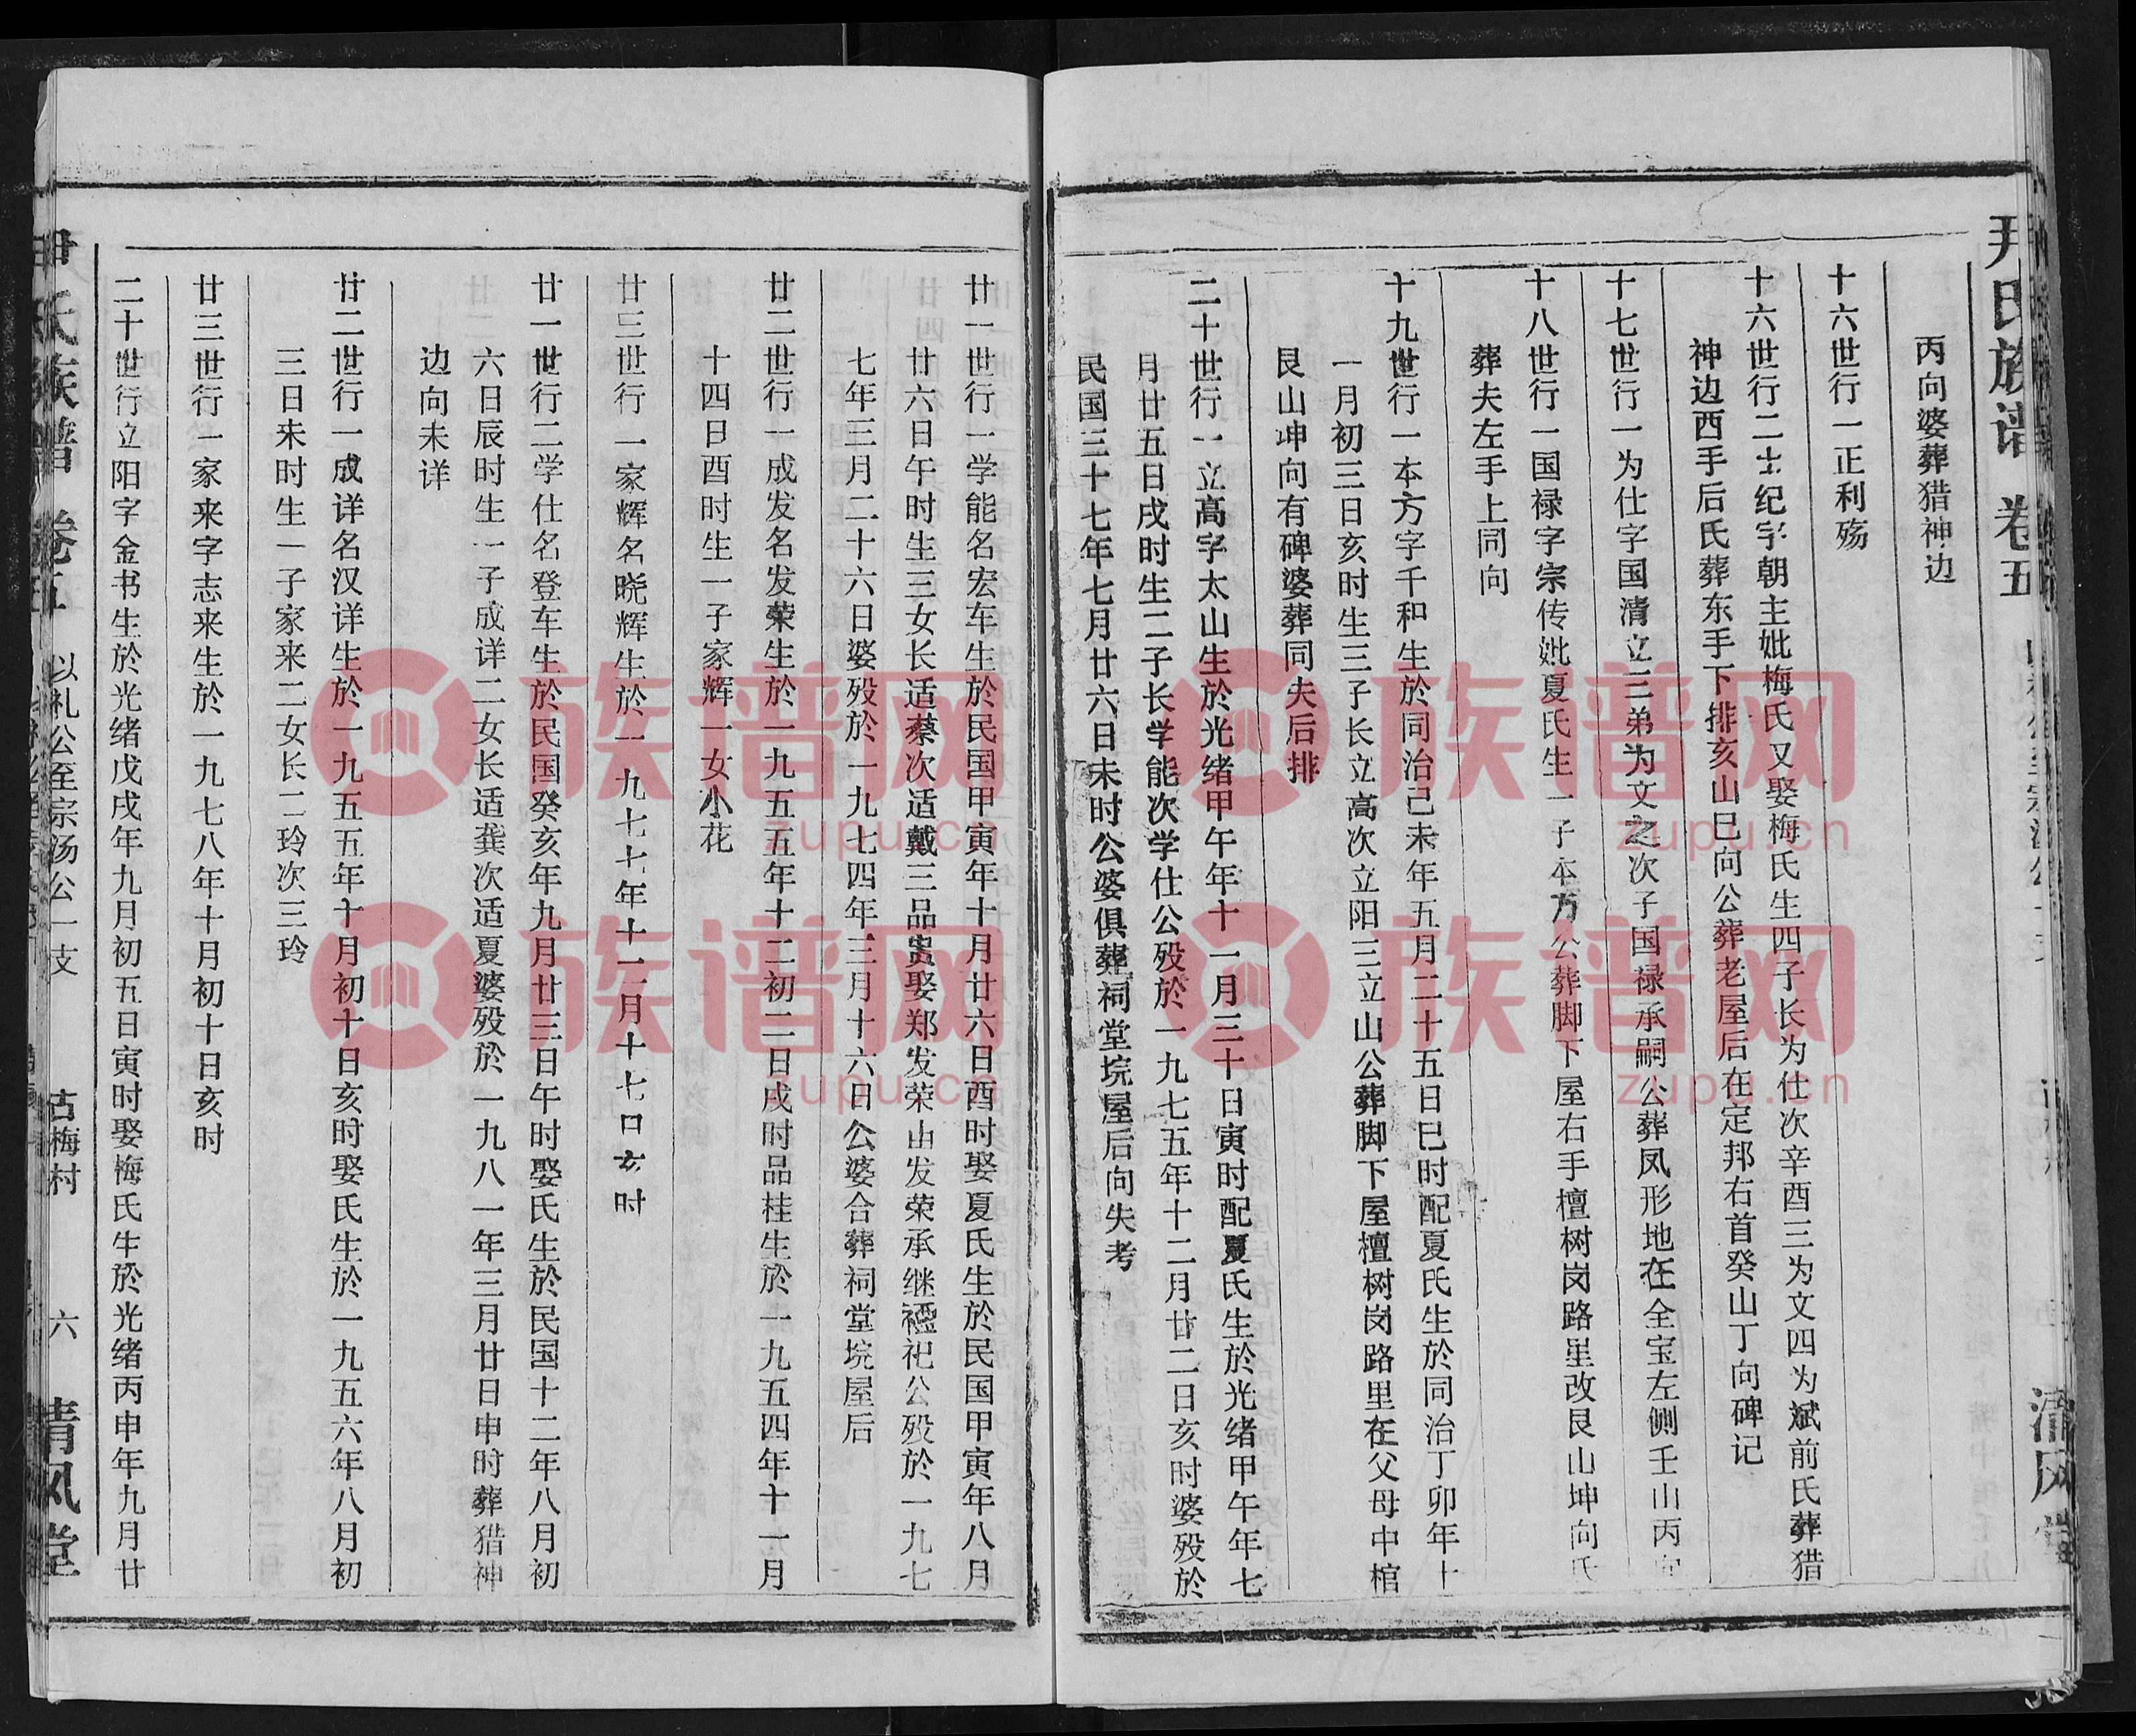 尹氏族谱 卷五
清风堂
丙向婆葬猎神边
十六世行一正利殇
十六世行二士纪字朝主妣梅氏又娶梅氏生四子长为仕次辛酉三为文四为斌前氏葬猎
神边西手后氏葬东手下排亥山巳向公葬老屋后在定邦右首癸山丁向碑记
十七世行一为仕字国清立三弟为文之次子国禄承嗣公葬凤形地在全宝左侧壬山丙向
十八世行一国禄字宗传妣夏氏生一子本方公葬脚下屋右手檀树岗路里改艮山坤向氏
葬夫左手上同向
十九世行一本方字千和生於同治己未年五月二十五日巳时配夏氏生於同治丁卯年十
一月初三日亥时生三子长立高次立阳三立山公葬脚下屋檀树岗路里在父母中棺
艮山坤向有碑婆葬同夫后排
二十世行一立高字太山生於光绪甲午年十一月三十日寅时配夏氏生於光绪甲午年七
月廿五日戌时生二子长学能次学仕公殁於一九七五年十二月廿二日亥时婆殁於
民国三十七年七月廿六日未时公婆俱葬祠堂垸屋后向失考
廿一世行一学能名宏车生於民国甲寅年十月廿六日酉时娶夏氏生於民国甲寅年八月
廿六日午时生三女长适蔡次适戴三品贵娶郑发荣由发荣承继禋祀公殁於一九七
七年三月二十六日婆殁於一九七四年三月十六日公婆合葬祠堂垸屋后
廿二世行一成发名发荣生於一九五五年十二初二日戌时品桂生於一九五四年十一月
十四日酉时生一子家辉一女小花
廿三世行一家辉名晓辉生於一九七七年十一月十七日亥时
廿一世行二学仕名登车生於民国癸亥年九月廿三日午时娶氏生於民国十二年八月初
六日辰时生一子成详二女长适龚次适夏婆殁於一九八一年三月廿日申时葬猎神
边向未详
廿二世行一成详名汉详生於一九五五年十月初十日亥时娶氏生於一九五六年八月初
三日未时生一子家来二女长二玲次三玲
廿三世行一家来字志来生於一九七八年十月初十日亥时
二十世行立阳字金书生於光绪戊戌年九月初五日寅时娶梅氏生於光绪丙申年九月廿
尹氏族谱 卷五 以礼公至宗汤公一支 古梅村 六 清风堂
族谱网
zupu.cn
族谱网
zupu.cn
族谱网
zupu.cn
族谱网
zupu.cn